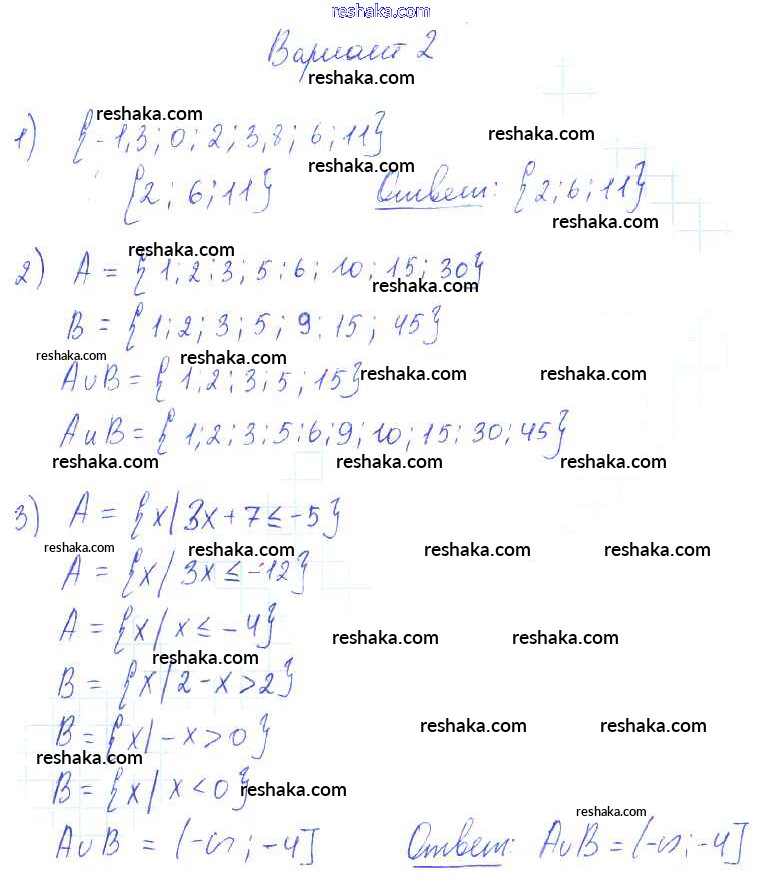 reshaka.com
Вариант 2
reshaka.com
reshaka.com
1) {-1,3; 0; 2; 3,8; 6; 11}
reshaka.com
reshaka.com
{2; 6; 11} Ответ: {2; 6; 11}
reshaka.com
reshaka.com
2) A = {1; 2; 3; 5; 6; 10; 15; 30}
reshaka.com
B = {1; 2; 3; 5; 9; 15; 45}
reshaka.com reshaka.com
A∪B = {1; 2; 3; 5; 15} reshaka.com reshaka.com
AиB = {1; 2; 3; 5; 6; 9; 10; 15; 30; 45}
reshaka.com reshaka.com reshaka.com
3) A = {x/3x+7≤-5}
reshaka.com reshaka.com reshaka.com reshaka.com
A = {x/3x≤-12}
A = {x/x≤-4}
reshaka.com reshaka.com
reshaka.com
B = {x/2-x>2}
reshaka.com reshaka.com
B = {x/-x>0}
reshaka.com
B = {x/x<0} reshaka.com
reshaka.com
A∪B = (-∞; -4] Ответ: A∪B = (-∞; -4]